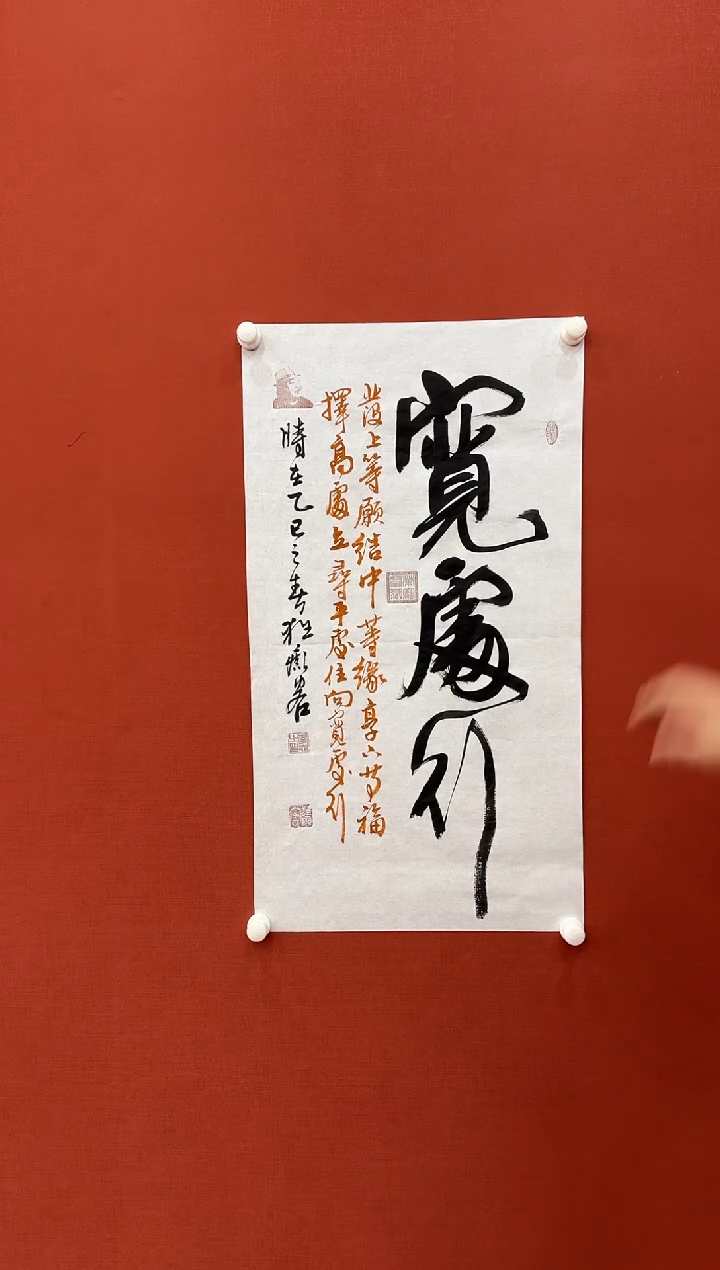 寬處行
發上等願結中等緣享下等福
擇高處立尋平處住向寬處行
時在乙巳之春